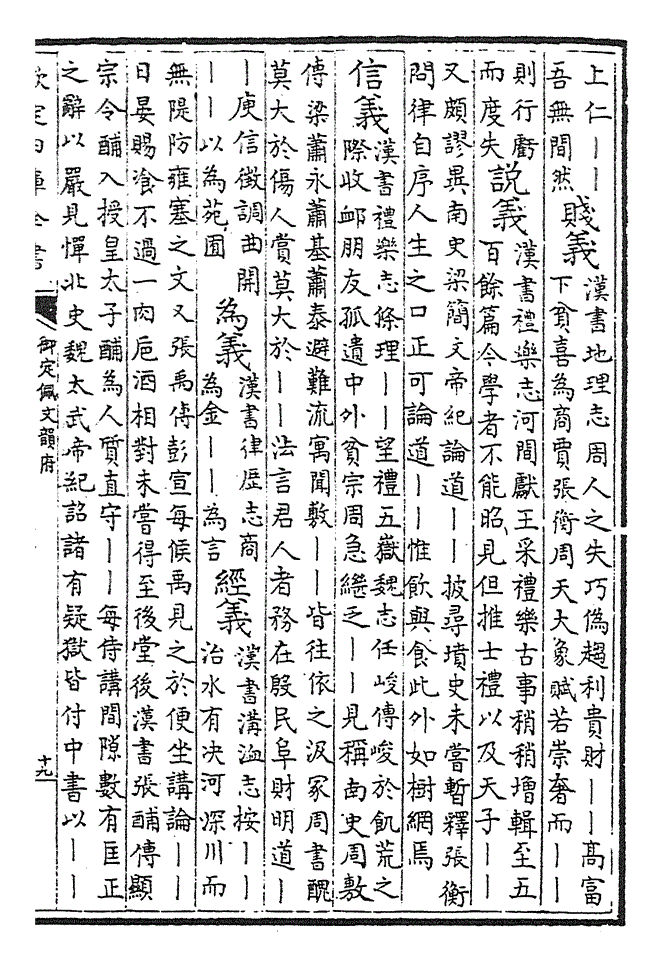 上仁丨丨
吾無間然
賤義
漢書地理志周人之失巧偽趨利貴財丨丨高富
下貧喜為商賈張衡周天大象賦若崇奢而丨丨
則行虧
而度失
說義
漢書禮樂志河間獻王采禮樂古事稍稍增輯至五
百餘篇今學者不能昭見但推士禮以及天子丨丨
又頗謬異南史梁簡文帝紀論道丨丨披尋墳史未嘗暫釋張衡
問律自序人生之口正可論道丨丨惟飲與食此外如樹網焉
信義
漢書禮樂志條理丨丨望禮五嶽魏志任峻傳峻於飢荒之
際收卹朋友孤遺中外貧宗周急繼乏丨丨見稱南史周敷
傳梁蕭永蕭基蕭泰避難流寓聞敷丨丨皆往依之汲冢周書醜
莫大於傷人賞莫大於丨丨法言君人者務在殷民阜財明道丨
丨庾信徵調曲開
丨丨以為苑囿
為義
漢書律歷志商
為金丨丨為言
經義
漢書溝洫志按丨丨
治水有決河深川而
無隄防雍塞之文又張禹傳彭宣每候禹見之於便坐講論丨丨
日晏賜飡不過一肉巵酒相對未嘗得至後堂後漢書張酺傳顯
宗令酺入授皇太子酺為人質直守丨丨每侍講間隙數有匡正
之辭以嚴見憚北史魏太武帝紀詔諸有疑獄皆付中書以丨丨
欽定四庫全書
御定佩文韻府
十九